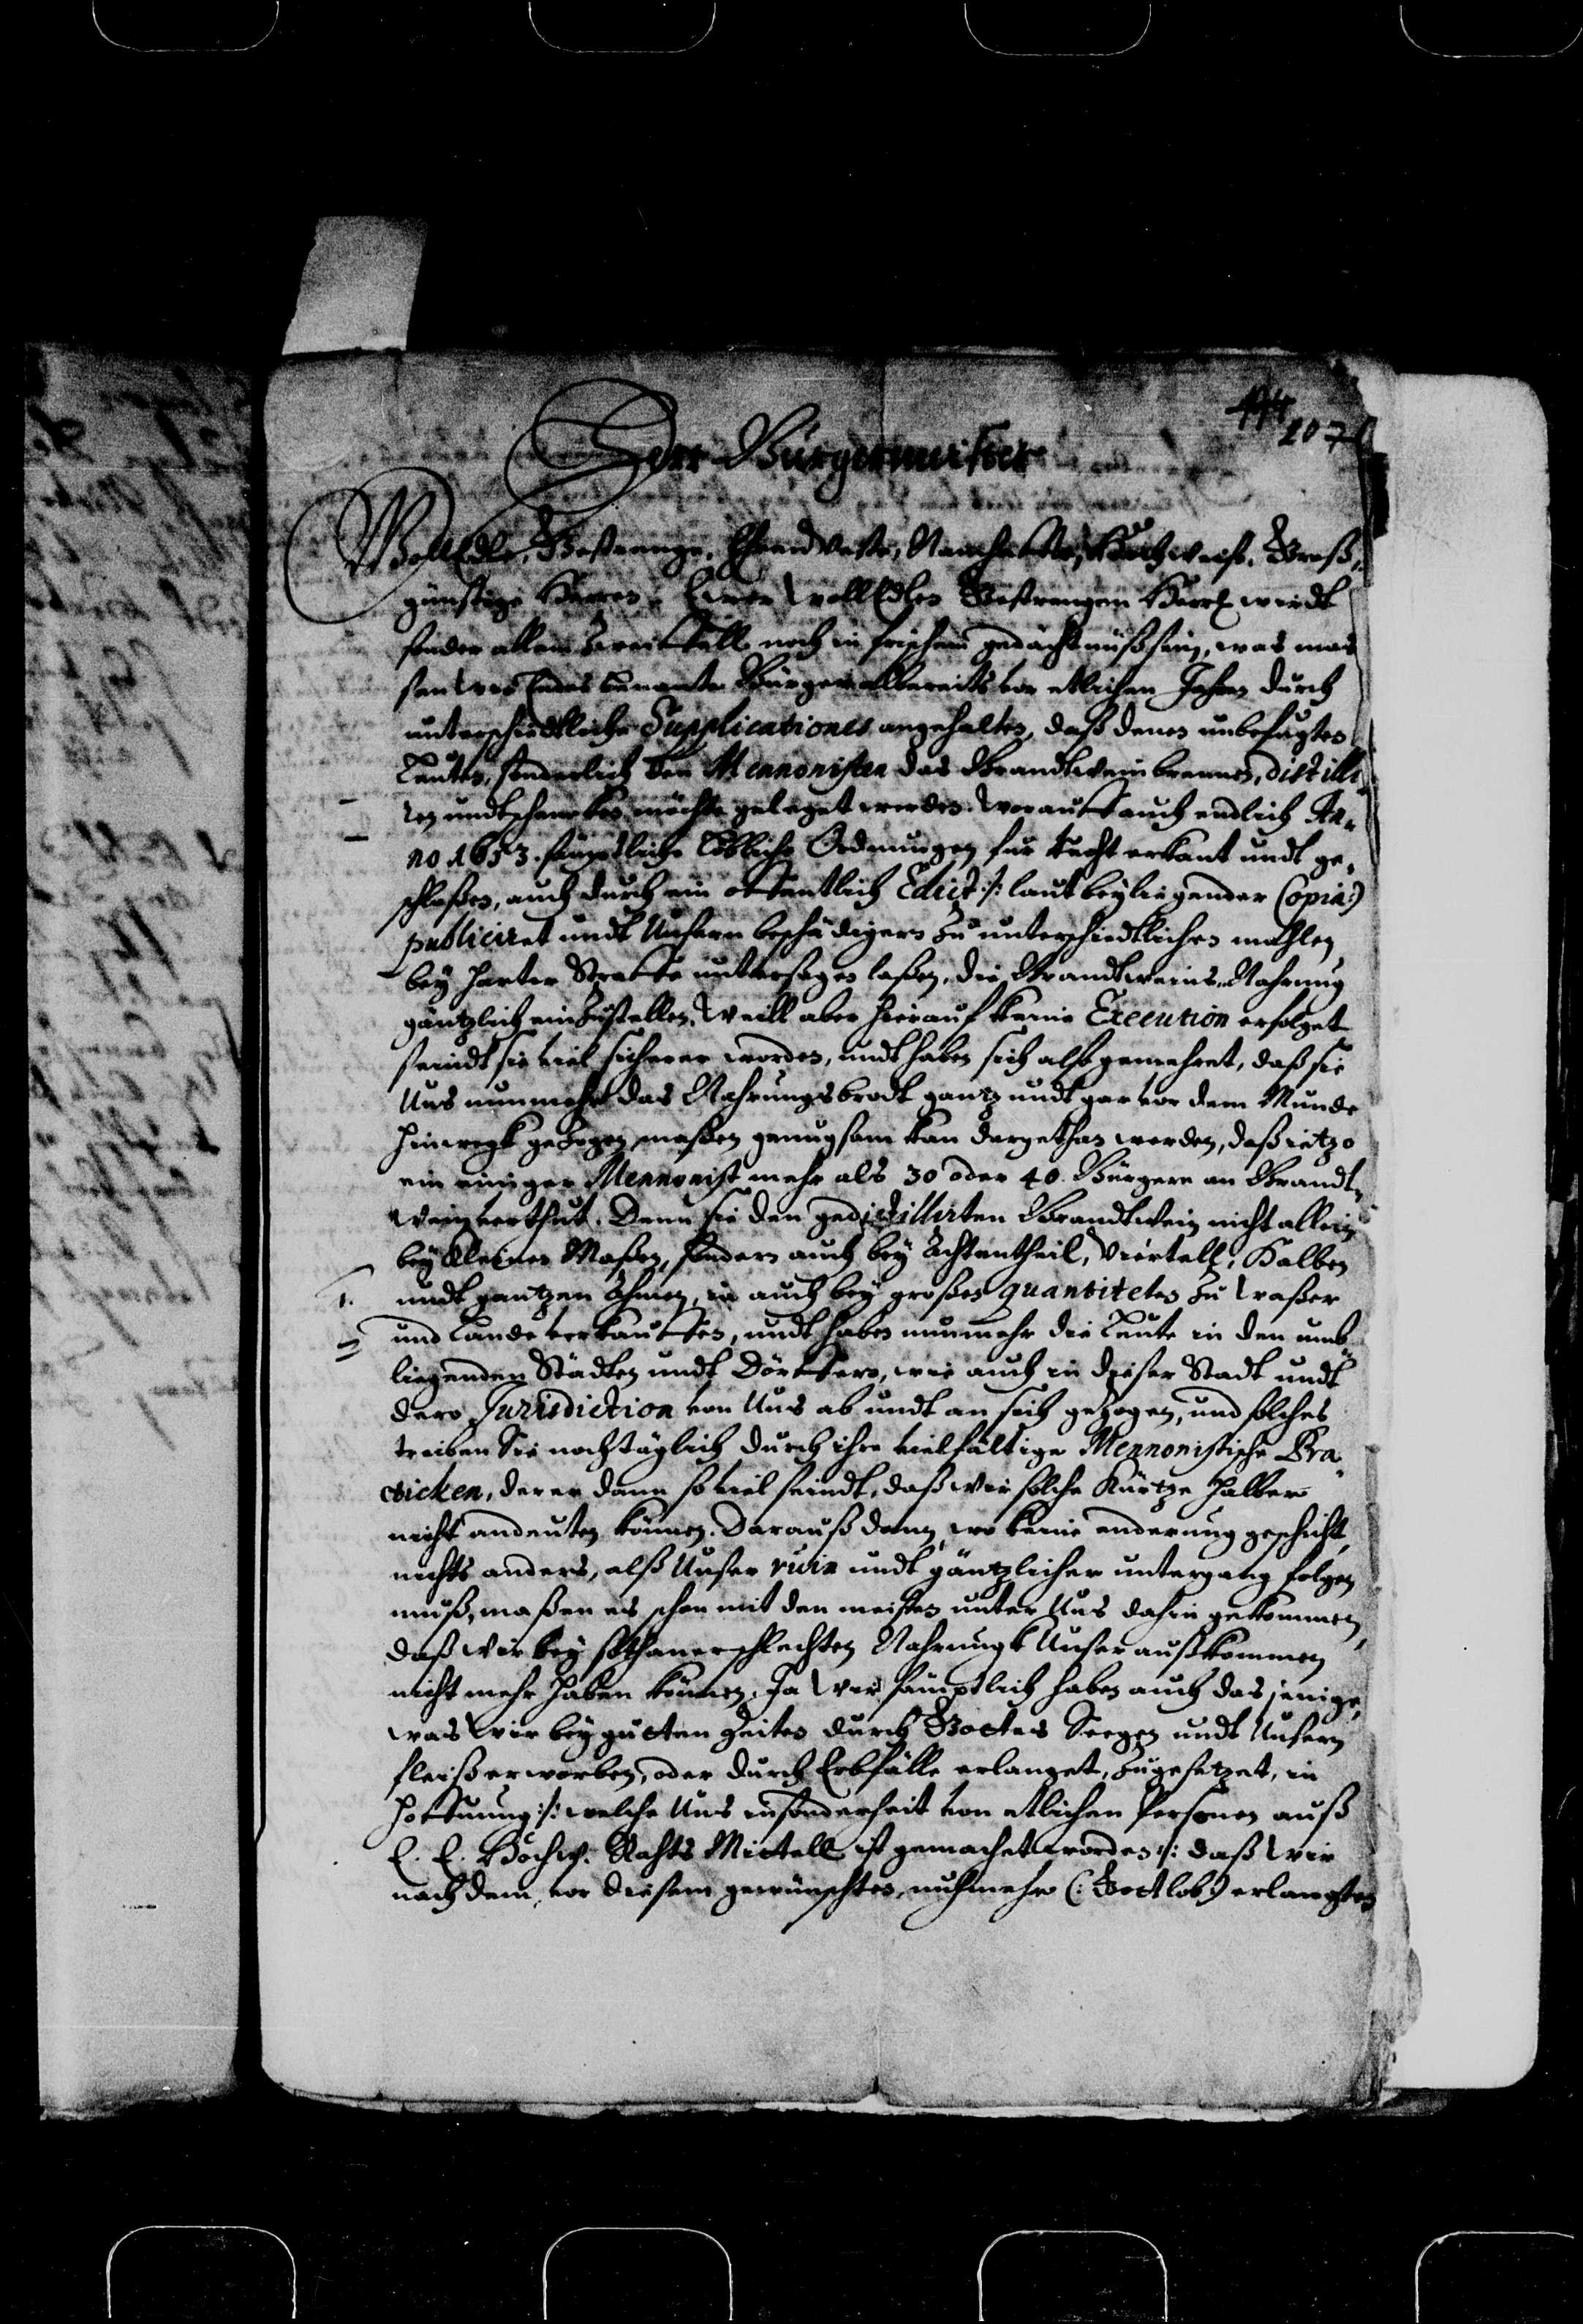 207
Herr Bürgermeister
WollEdle, Gestrenge, Ehrnd Veste, Nambhaffte, Hochweise, Groß,
günstige Herren. Ewer WollEdlen Gestrengen Herrl. wirdt
sonder allem Zweiffell noch in frischem gedächtnüß sein, was mas
sen wir Endes benante Bürger allbereits vor etlichen Jahren durch
unterschiedtliche Supplicationes angehalten, daß denen unbefugten
Leuten, sonderlich den Mennonisten das Brandtwein brennen, distilli,
ren undt schencken möchte geleget werden. Worauff auch endlich An,
no 1653. sämptliche Löbliche Ordnungen für Recht erkant undt ge,
schloßen, auch durch ein offentlich Edict /: laut beyliegender Copia:)
publiciret undt Unsern beschädigern Zu unterschiedtlichen mahlen
bey harter Straffe untersagen laßen, die Brandtweins-Nahrung
gäntzlich einZustellen. Weill aber hierauf keine Execution erfolget
seindt sie viel sicherer worden, undt haben sich also gemehret, daß sie
Uns nunmehr das Nahrungsbrodt gantz undt gar vor dem Munde
hinwegk geZogen maßen genugsam kan dargethan werden, daß ietzo
ein einiger Mennonist mehr als 30 oder 40. Bürgere an Brandt,
wein verthut. Denn sie den gedistillirten Brandtwein nicht allein
bey kleinen Maßen, sondern auch bey Achtentheil, Viertell, Halben
1. undt gantzen Ohmen, ia auch bey großen quantiteten Zu Waßer
und Lande verkauffen, undt haben nunmehr die Leute in den umb
liegenden Städten undt Dörffern, wie auch in dieser Stadt undt
dero Jurisdiction von Uns ab undt an sich geZogen, und solches
treiben Sie noch täglich durch ihre vielfältige Mennonistische Pra,
cticken, derer dann so viel seindt, daß wir solche Kürtze halber
nicht andeuten können. Darauß dann, wo keine enderung geschicht,
nichts anders, alß Unser ruin undt gäntzlicher untergang folgen
muß, maßen es schon mit den meisten unter Uns dahin gekommen,
daß wir bey sothaner schlechten Nahrungk Unser außkommen
nicht mehr haben können. Ja Wir sämptlich haben auch das jenige,
was Wir bey gutten Zeiten durch Gottes Seegen undt Unsern
fleiß erworben, oder durch Erbfälle erlanget, Zugesetzet, in
Hoffnung /: welche Uns insonderheit von etlichen Personen auß
E. E. Hochw. Rahts Mittell ist gemachet worden :/ daß Wir
nach dem, vor diesem gewünschten, nuhmehr (: Gott lob:) erlangten